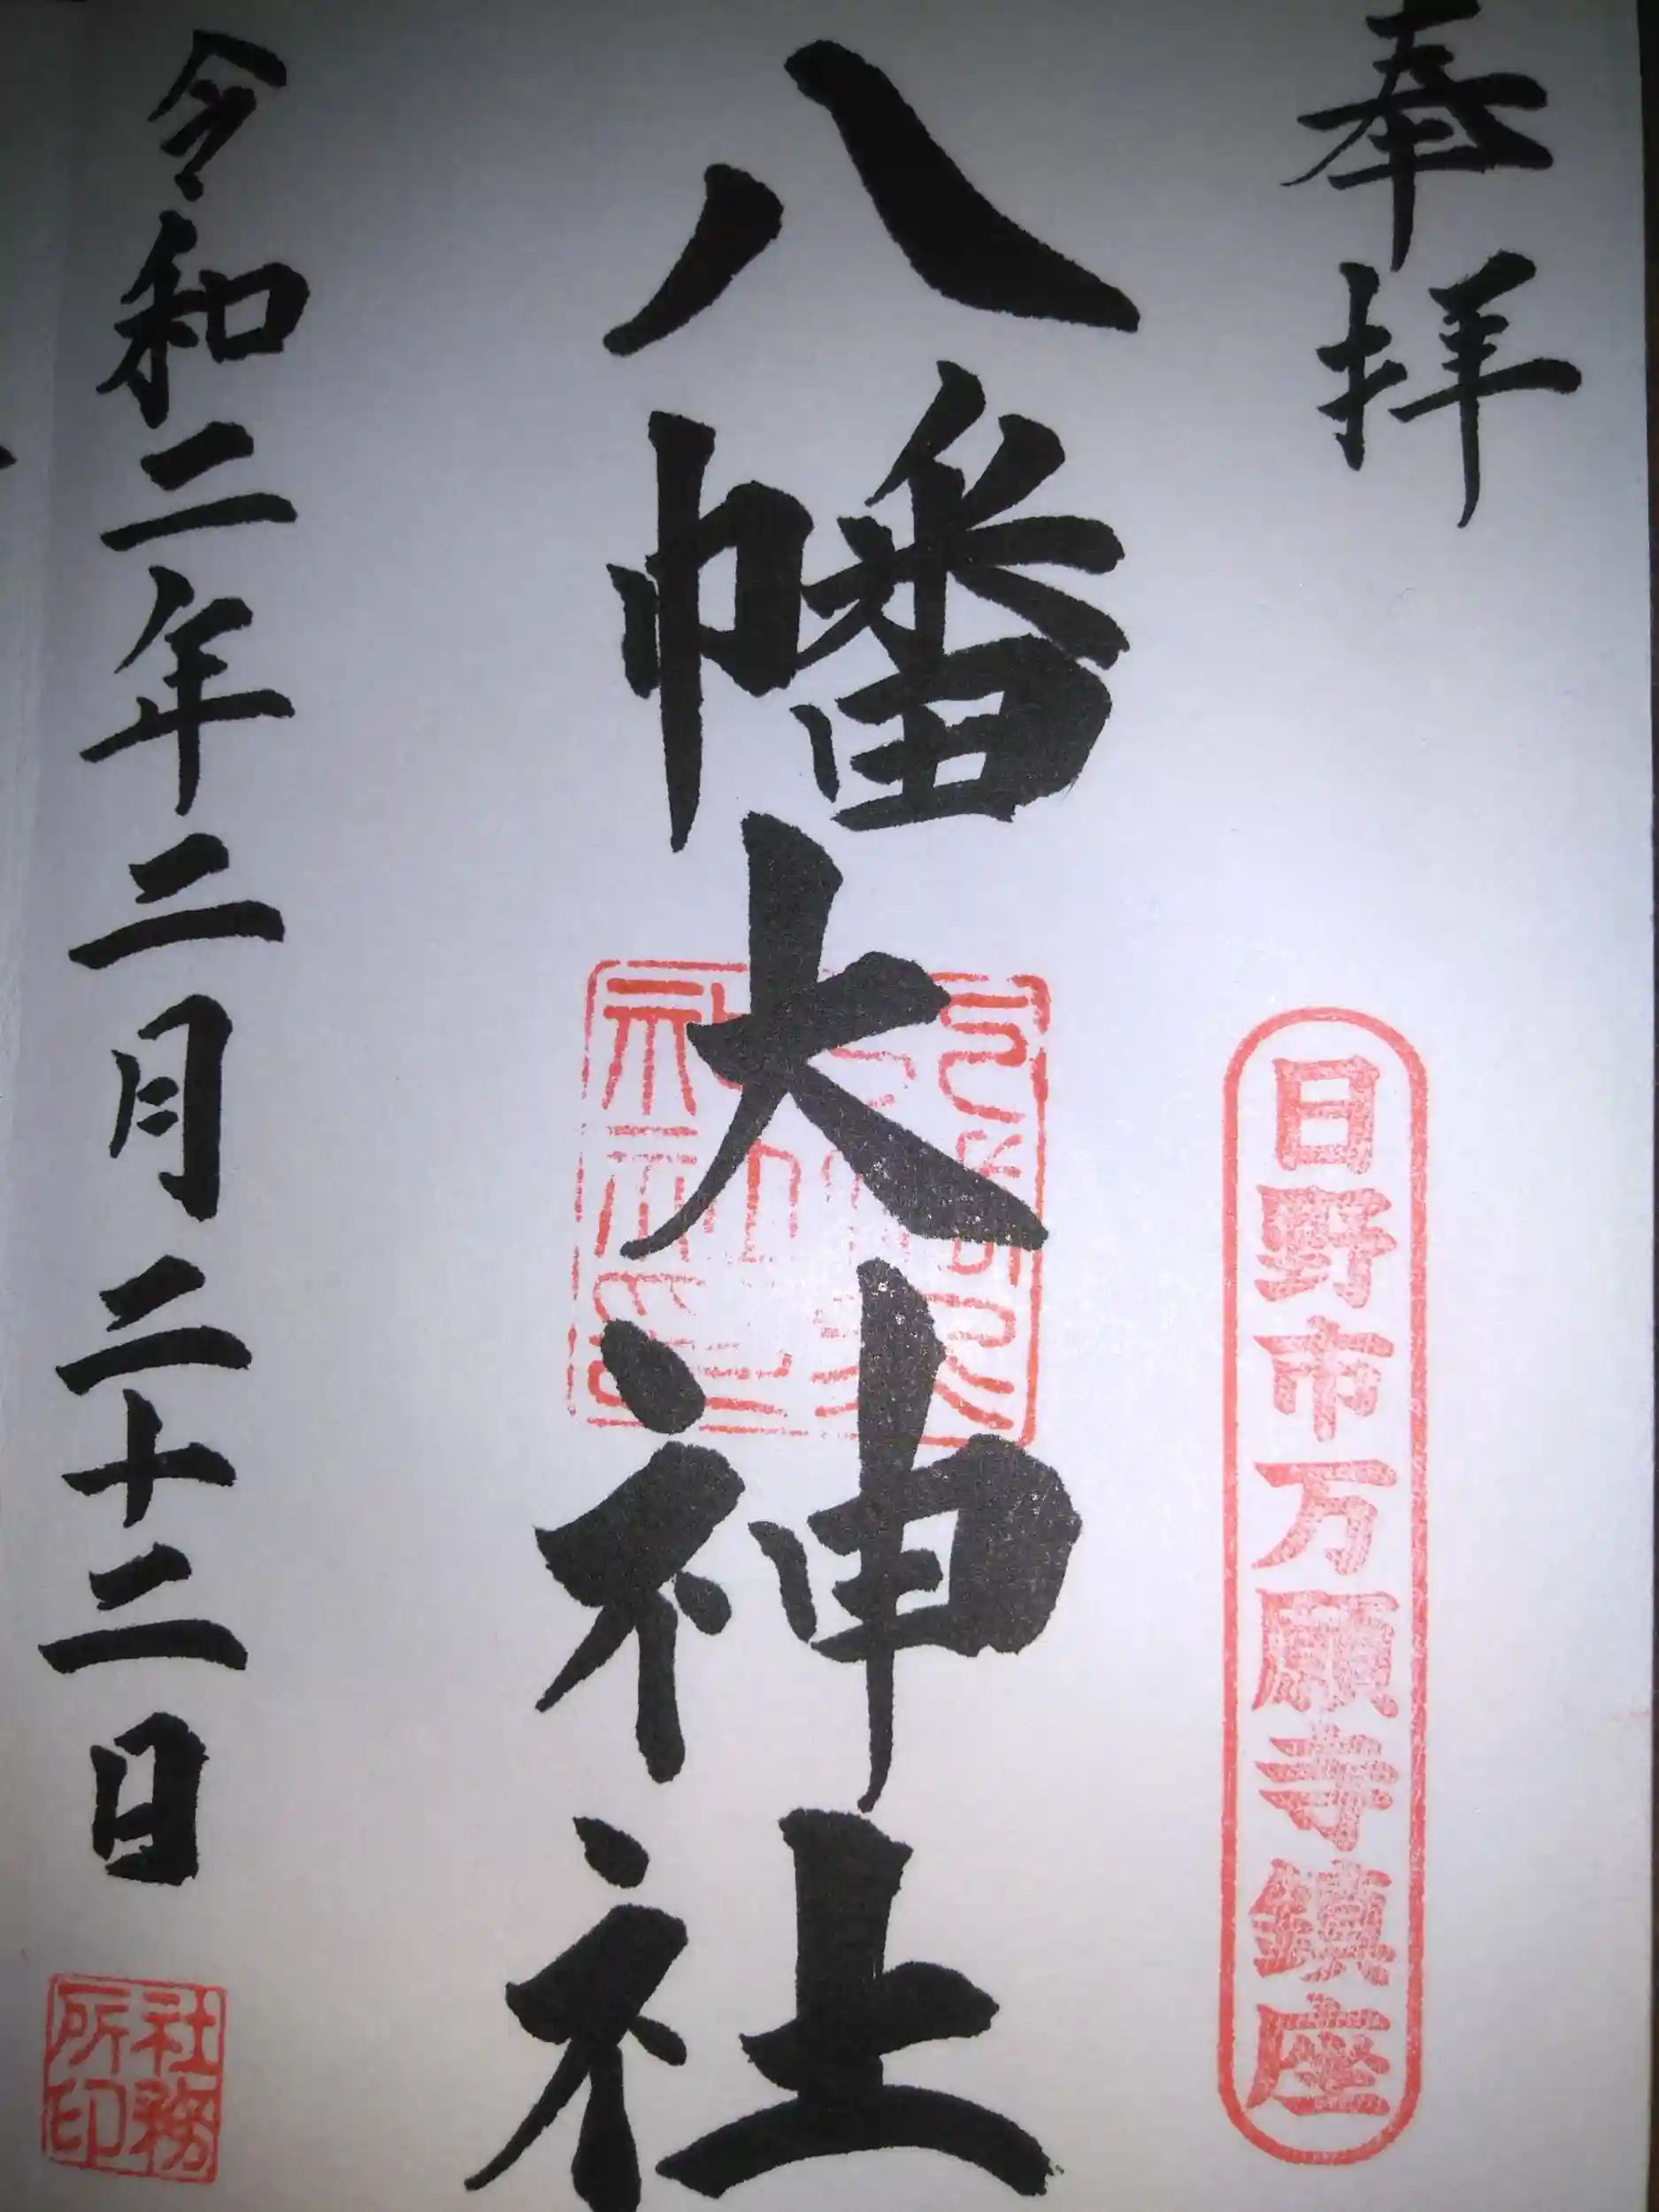 奉拝
日野市万願寺鎮座
八幡大神社
令和二年二月二十二日
社務
所印